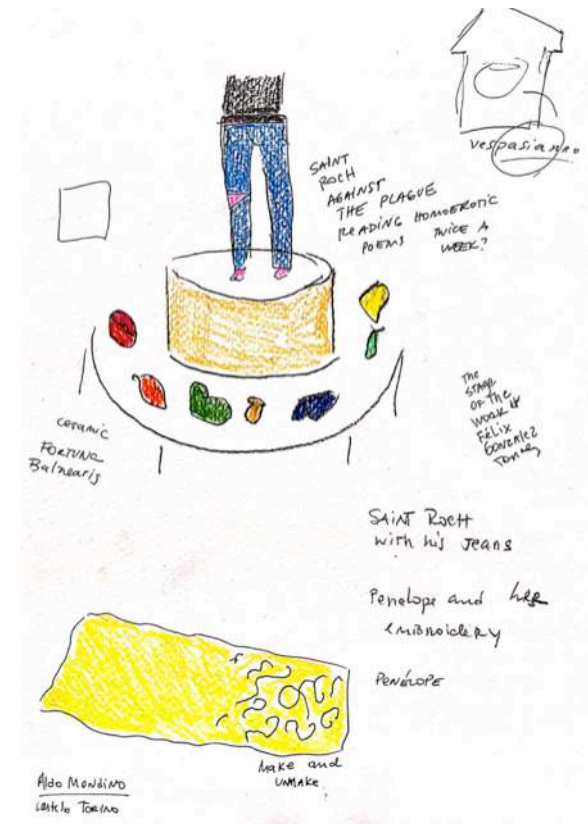 vespasianno
SAINT
ROCH
AGAINST
THE PLAGUE
READING HOMOEROTIC
POEMS TWICE A
WEEK?
ceramic
FORTUNA
Balnearis
The
STAGE
OF THE
WORK
FéLIX
GONZALEZ
TORRES
SAINT ROCH
with his Jeans
Penelope and her
embroidery
PENÉLOPE
Make and
UNMAKE
Aldo Mondino
Castelo Torino